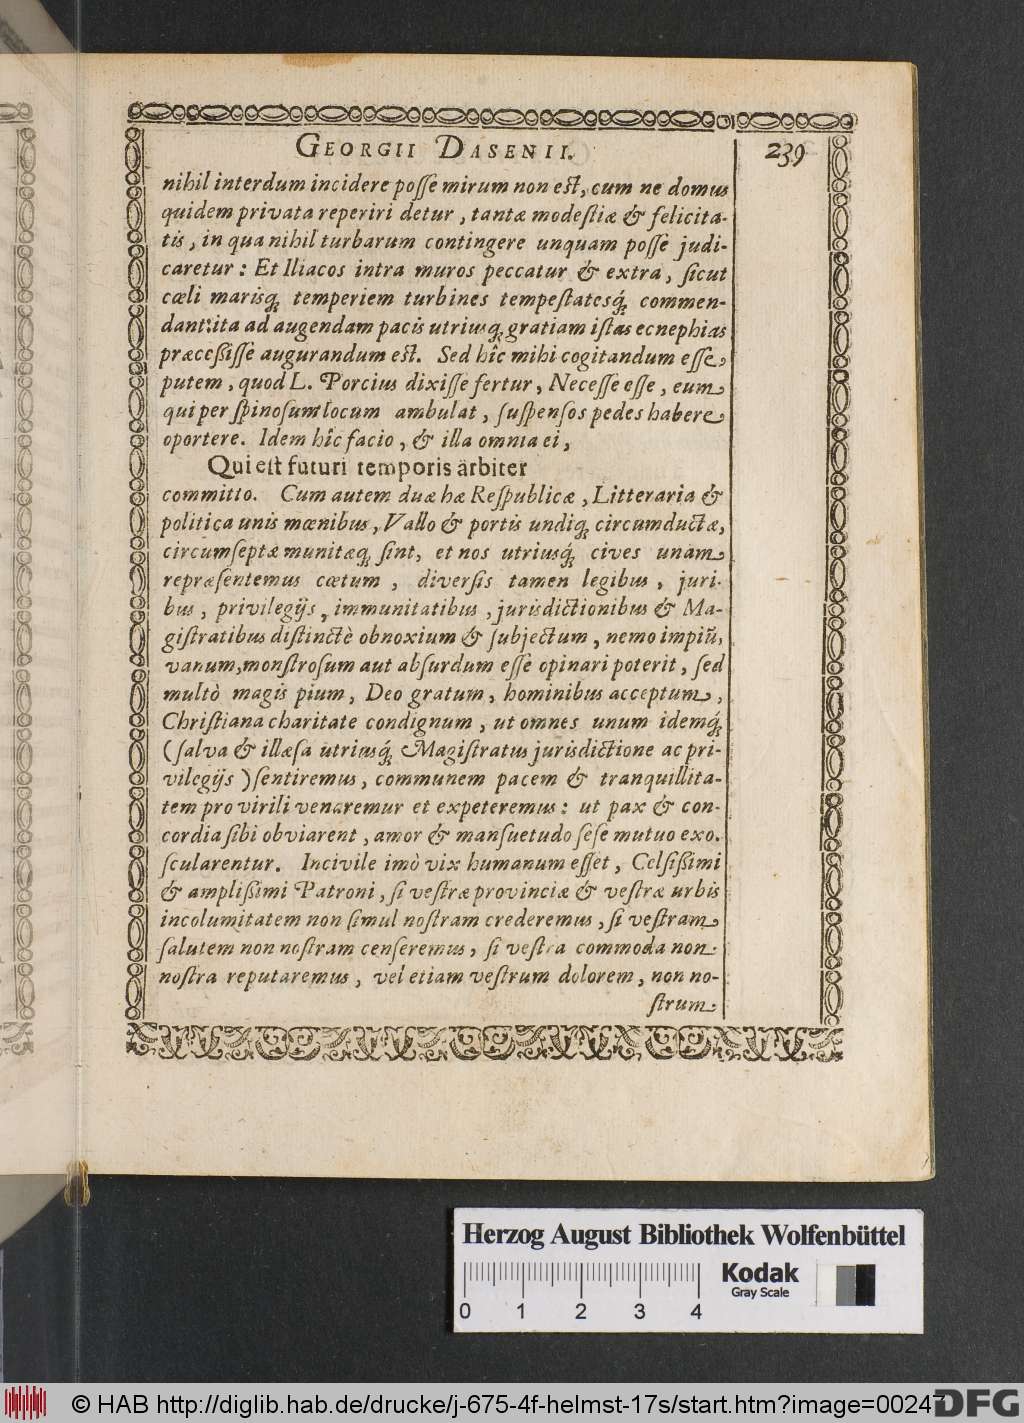 GEORGII DASENII.
239
nihil interdum incidere posse mirum non est, cum ne domus
quidem privata reperiri detur, tantæ modestiæ & felicita-
tis, in qua nihil turbarum contingere unquam posse judi-
caretur: Et Iliacos intra muros peccatur & extra, sicut
cæli marisq́; temperiem turbines tempestatesq́; commen-
dant: ita ad augendam pacis utriusq́; gratiam istas ecnephias
præceßisse augurandum est. Sed hîc mihi cogitandum esse
putem, quod L. Porcius dixisse fertur, Necesse esse, eum
qui per spinosum locum ambulat, suspensos pedes habere
oportere. Idem hîc facio, & illa omnia ei,
Qui est futuri temporis arbiter
committo. Cum autem duæ hæ Respublicæ, Litteraria &
politica unis mœnibus, Vallo & portis undiq; circumductæ,
circumseptæ munitæq́; sint, et nos utriusq́; cives unam
repræsentemus cœtum, diversis tamen legibus, juri-
bus, privilegijs, immunitatibus, jurisdictionibus & Ma-
gistratibus distinctè obnoxium & subjectum, nemo impiũ,
vanum, monstrosum aut absurdum esse opinari poterit, sed
multò magis pium, Deo gratum, hominibus acceptum,
Christiana charitate condignum, ut omnes unum idemq́;
(salva & illæsa utriusq́; Magistratus jurisdictione ac pri-
vilegijs) sentiremus, communem pacem & tranquillita-
tem pro virili venaremur et expeteremus: ut pax & con-
cordia sibi obviarent, amor & mansuetudo sese mutuo exo-
scularentur. Incivile imò vix humanum esset, Celsißimi
& amplißimi Patroni, si vestræ provinciæ & vestræ urbis
incolumitatem non simul nostram crederemus, si vestram
salutem non nostram censeremus, si vestra commoda non
nostra reputaremus, vel etiam vestrum dolorem, non no-
strum
Herzog August Bibliothek Wolfenbüttel
0 1 2 3 4
Kodak
Gray Scale
© HAB http://diglib.hab.de/drucke/j-675-4f-helmst-17s/start.htm?image=00247
DFG